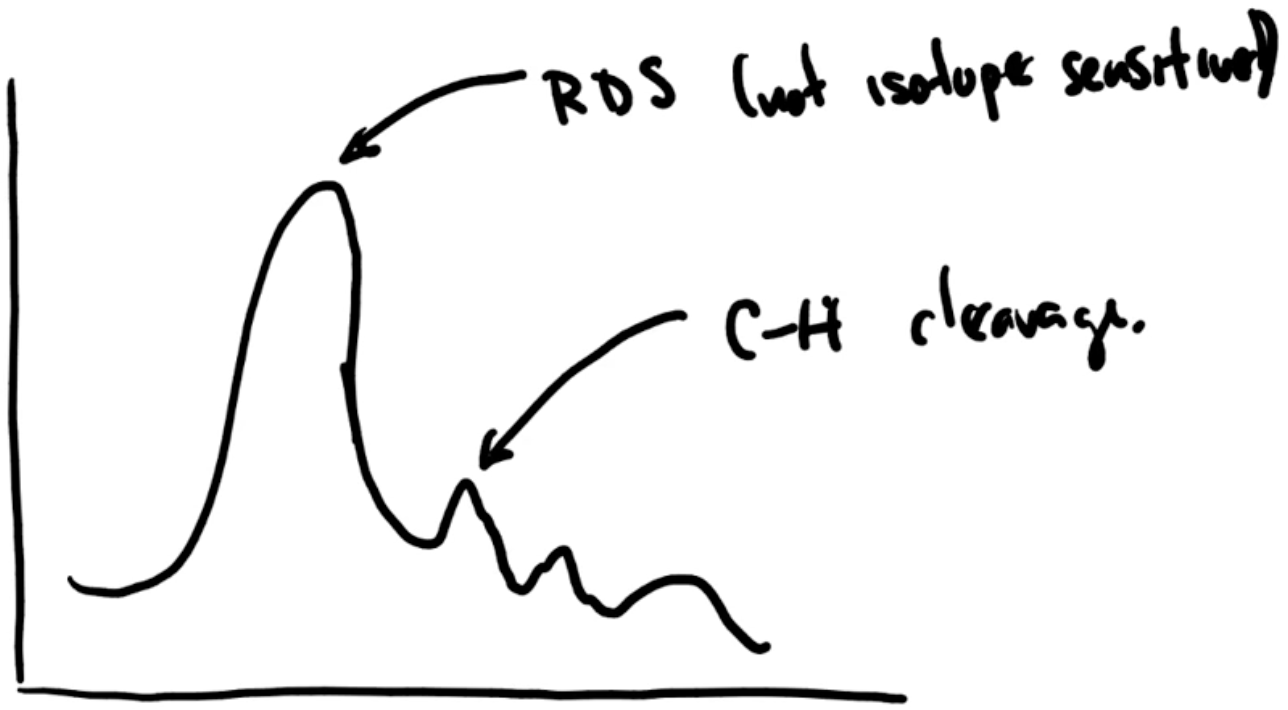 RDS (not isotope sensitive)
C-H cleavage.